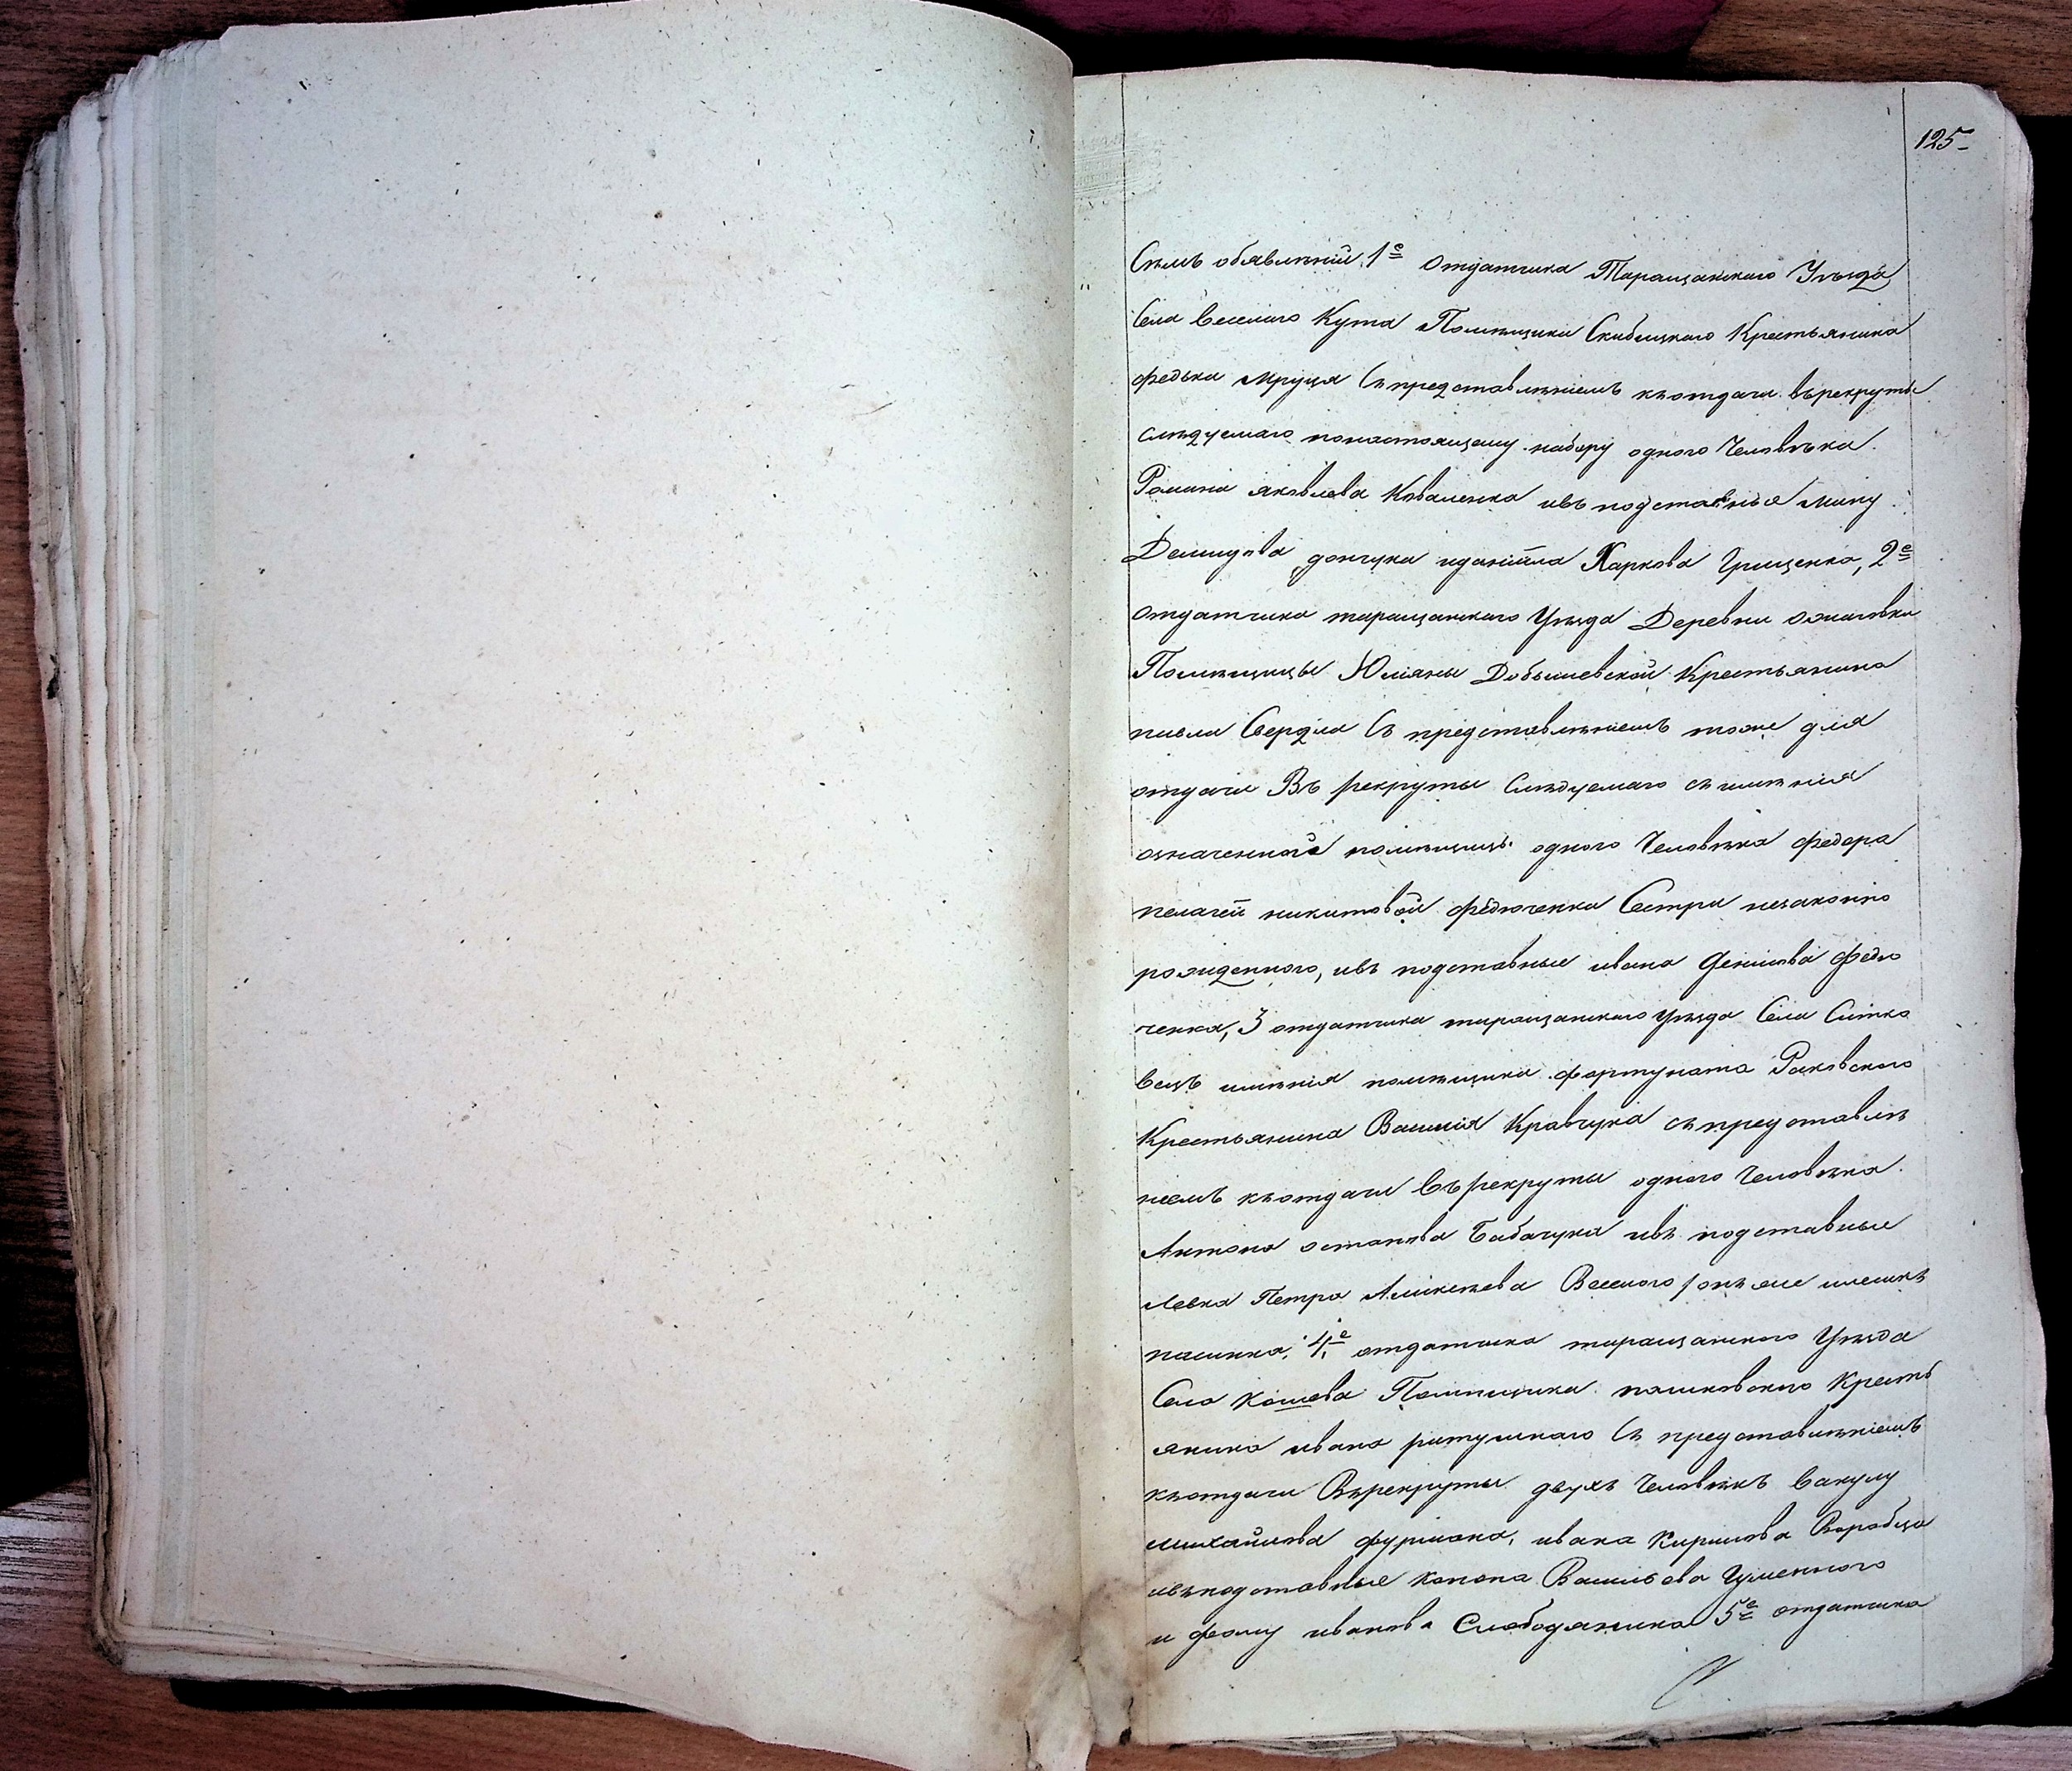 125
Съмъ обявленій 1е Отдатчика Таращанскаго Уѣзда
Села Веселаго Кута Помѣщика Скибицкаго Крестьянина
федька мруця Съ представленіемъ къ отдачи въ рекруты
слѣдуемаго понастоящему набору одного Человѣка
Романа яковлева Коваленка ивъ подставные мину
Демидова донцука иданіила Харкова Грищенка, 2е
отдатчика таращанскаго Уѣзда Деревни ожаговки
Помѣщицы Юліяны Добышевской Крестьянина
павла Сердка Съ представленіемъ тоже для
отдачи Въ рекруты Слѣдуемаго съ имѣнія
означенной помѣщицы одного Человѣка федора
пелагеи никитовой федюченки Сестри незаконно
рожденного, ивъ подставные ивана денисова федю
ченка, 3 отдатчика таращанскаго Уѣзда Села Ситко
вецъ имѣнія помѣщика фортуната Раковского
Крестьянина Василія Кравчука съ представлѣ
ніемъ къ отдачи въ рекруты одного Человѣка
Антона остапова Бабачука ивъ подставные
Левка Петра Аликсѣева Веселого
пасинка, 4е отдатчика таращанского Уѣзда
Села кошева Помѣщика пашковского Кресть
янина ивана Съ представленіемъ
къ отдачи Въ рекруты двухъ Человѣкъ вакулу
михайлова фурмана, ивана Кирилова Воробца
ивъ подставные Конона Васильева Гуменного
и фому иванова Слободяника 5е отдатчика